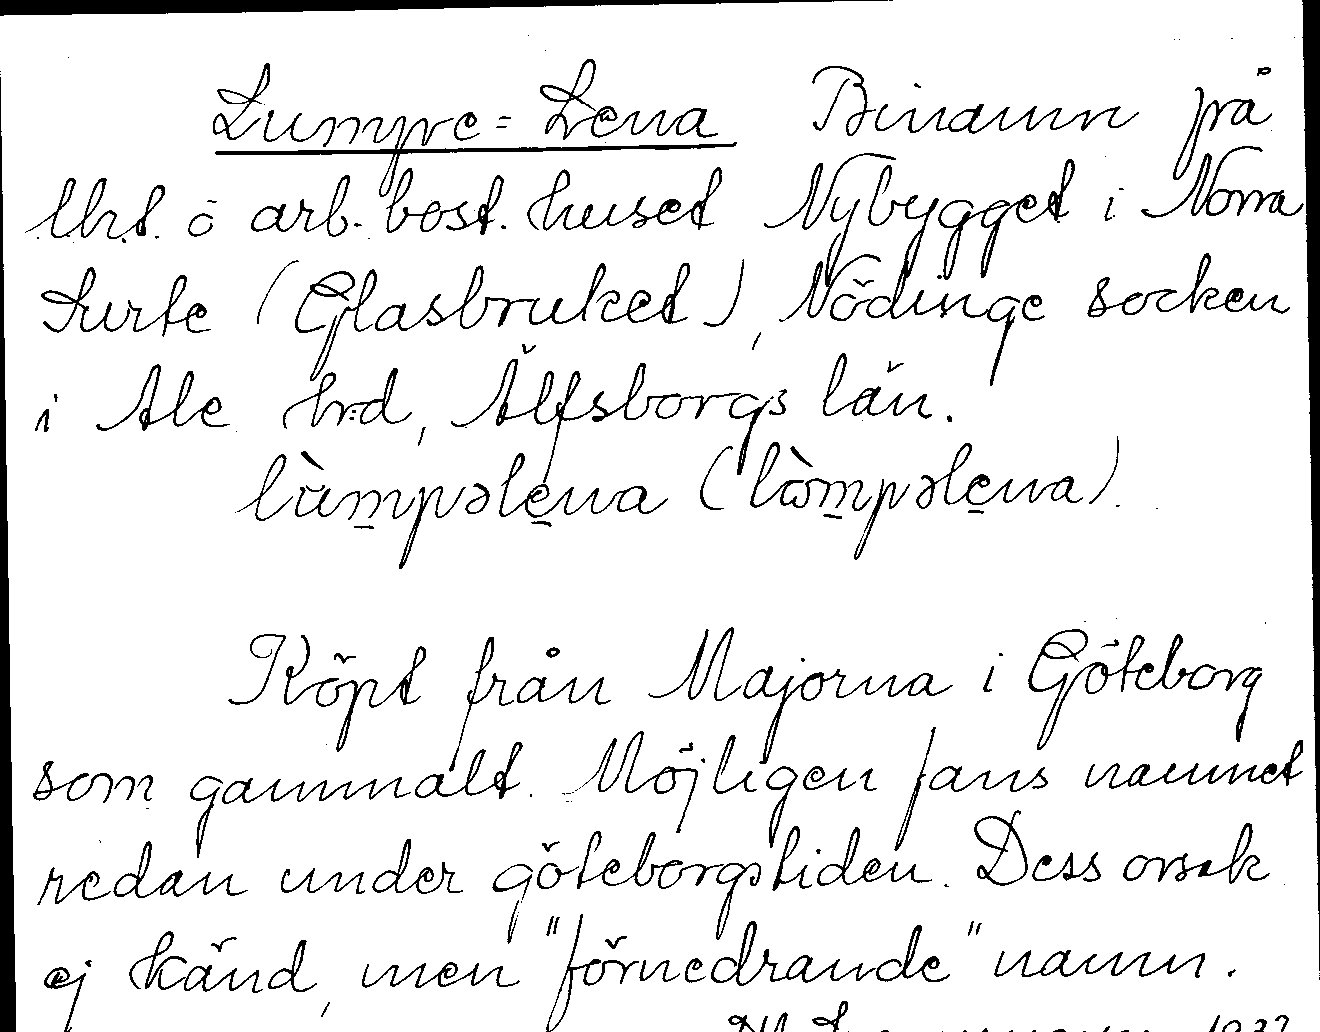 Lumpe-Lena Binamn på
lht. ö arb. bost. huset Nybygget i Norra
Surte (Glasbruket), Nödinge socken
i Ale hrd, Älfsborgs län.
lùmpəlena (lòmpəlena).
Köpt från Majorna i Göteborg
som gammalt. Möjligen fans namnet
redan under göteborgstiden. Dess orsak
ej känd, men "förnedrande" namn.